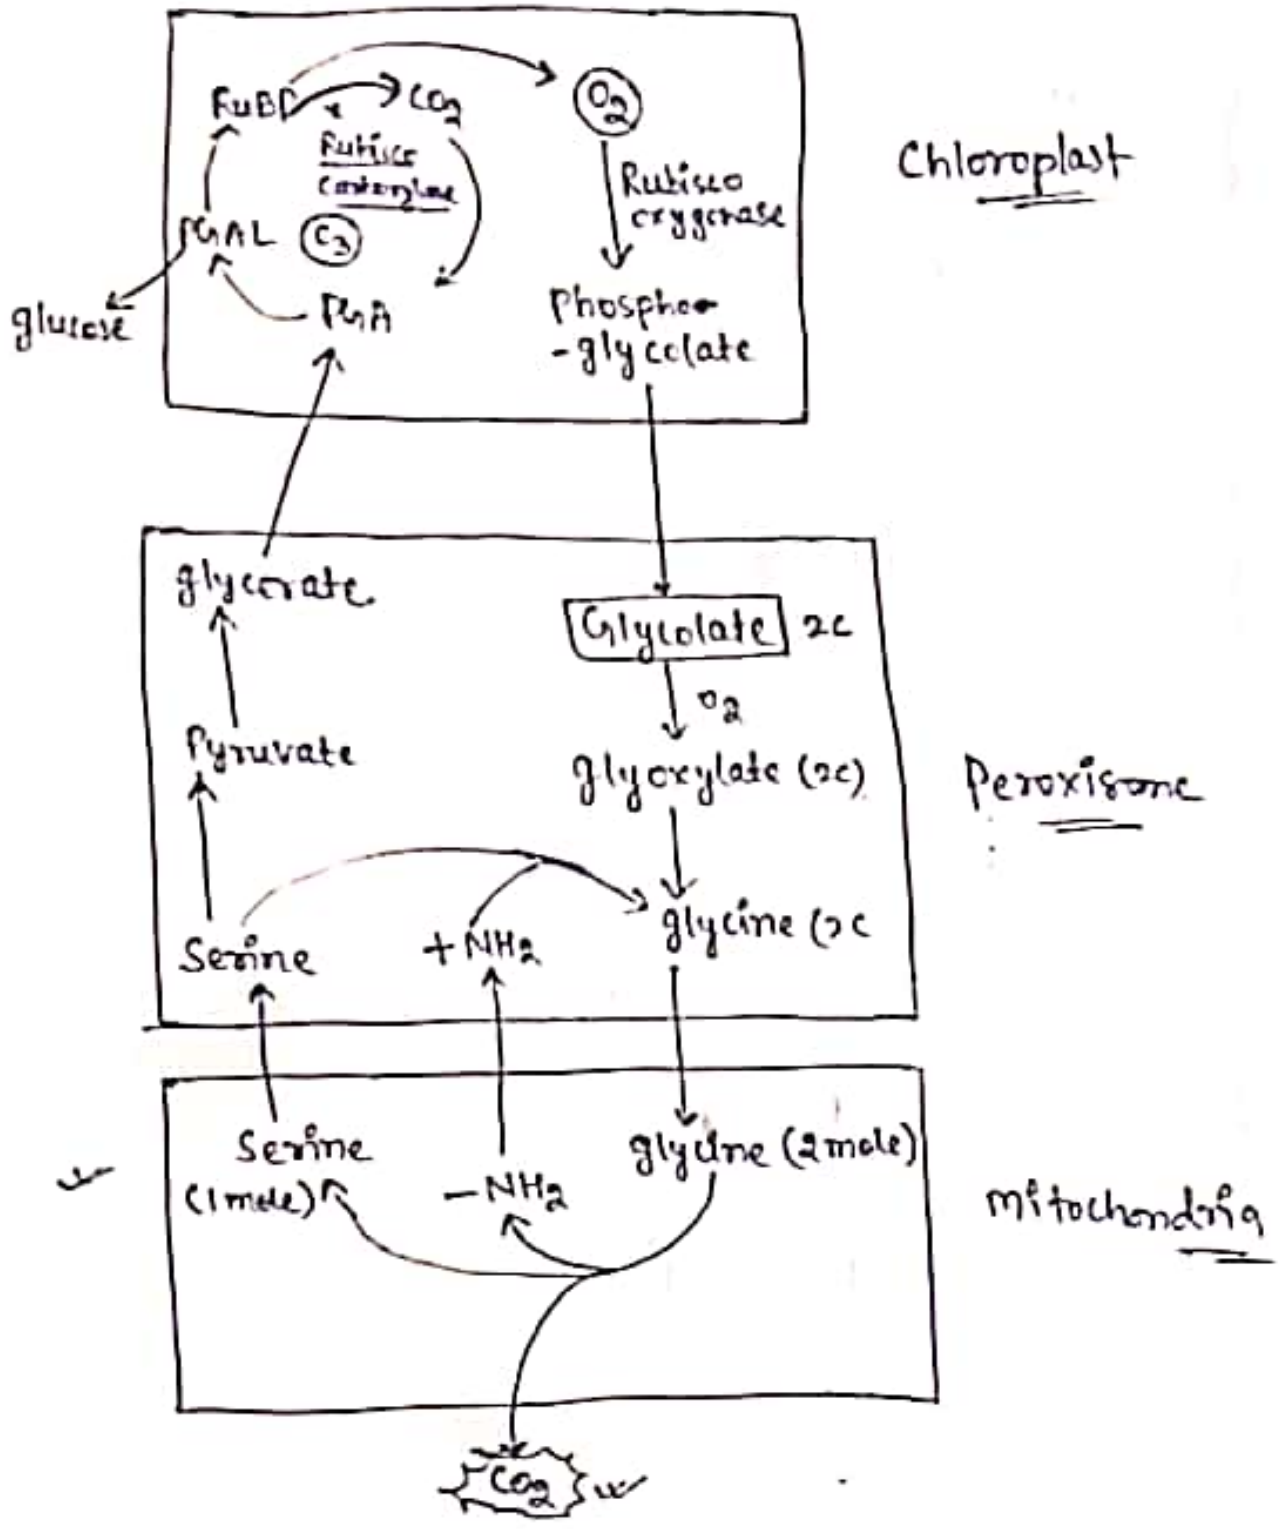 RuBP
CO2
O2
Rubisco
Rubisco
oxygenase
Chloroplast
PGAL
C3
glucose
PGA
Phospho-
-glycolate
glycerate
Glycolate 2c
O2
Pyruvate
glyoxylate (2c)
Peroxisome
Serine
+NH2
glycine (2c
Serine
(1 mole)
-NH2
glycine (2 mole)
Mitochondria
CO2